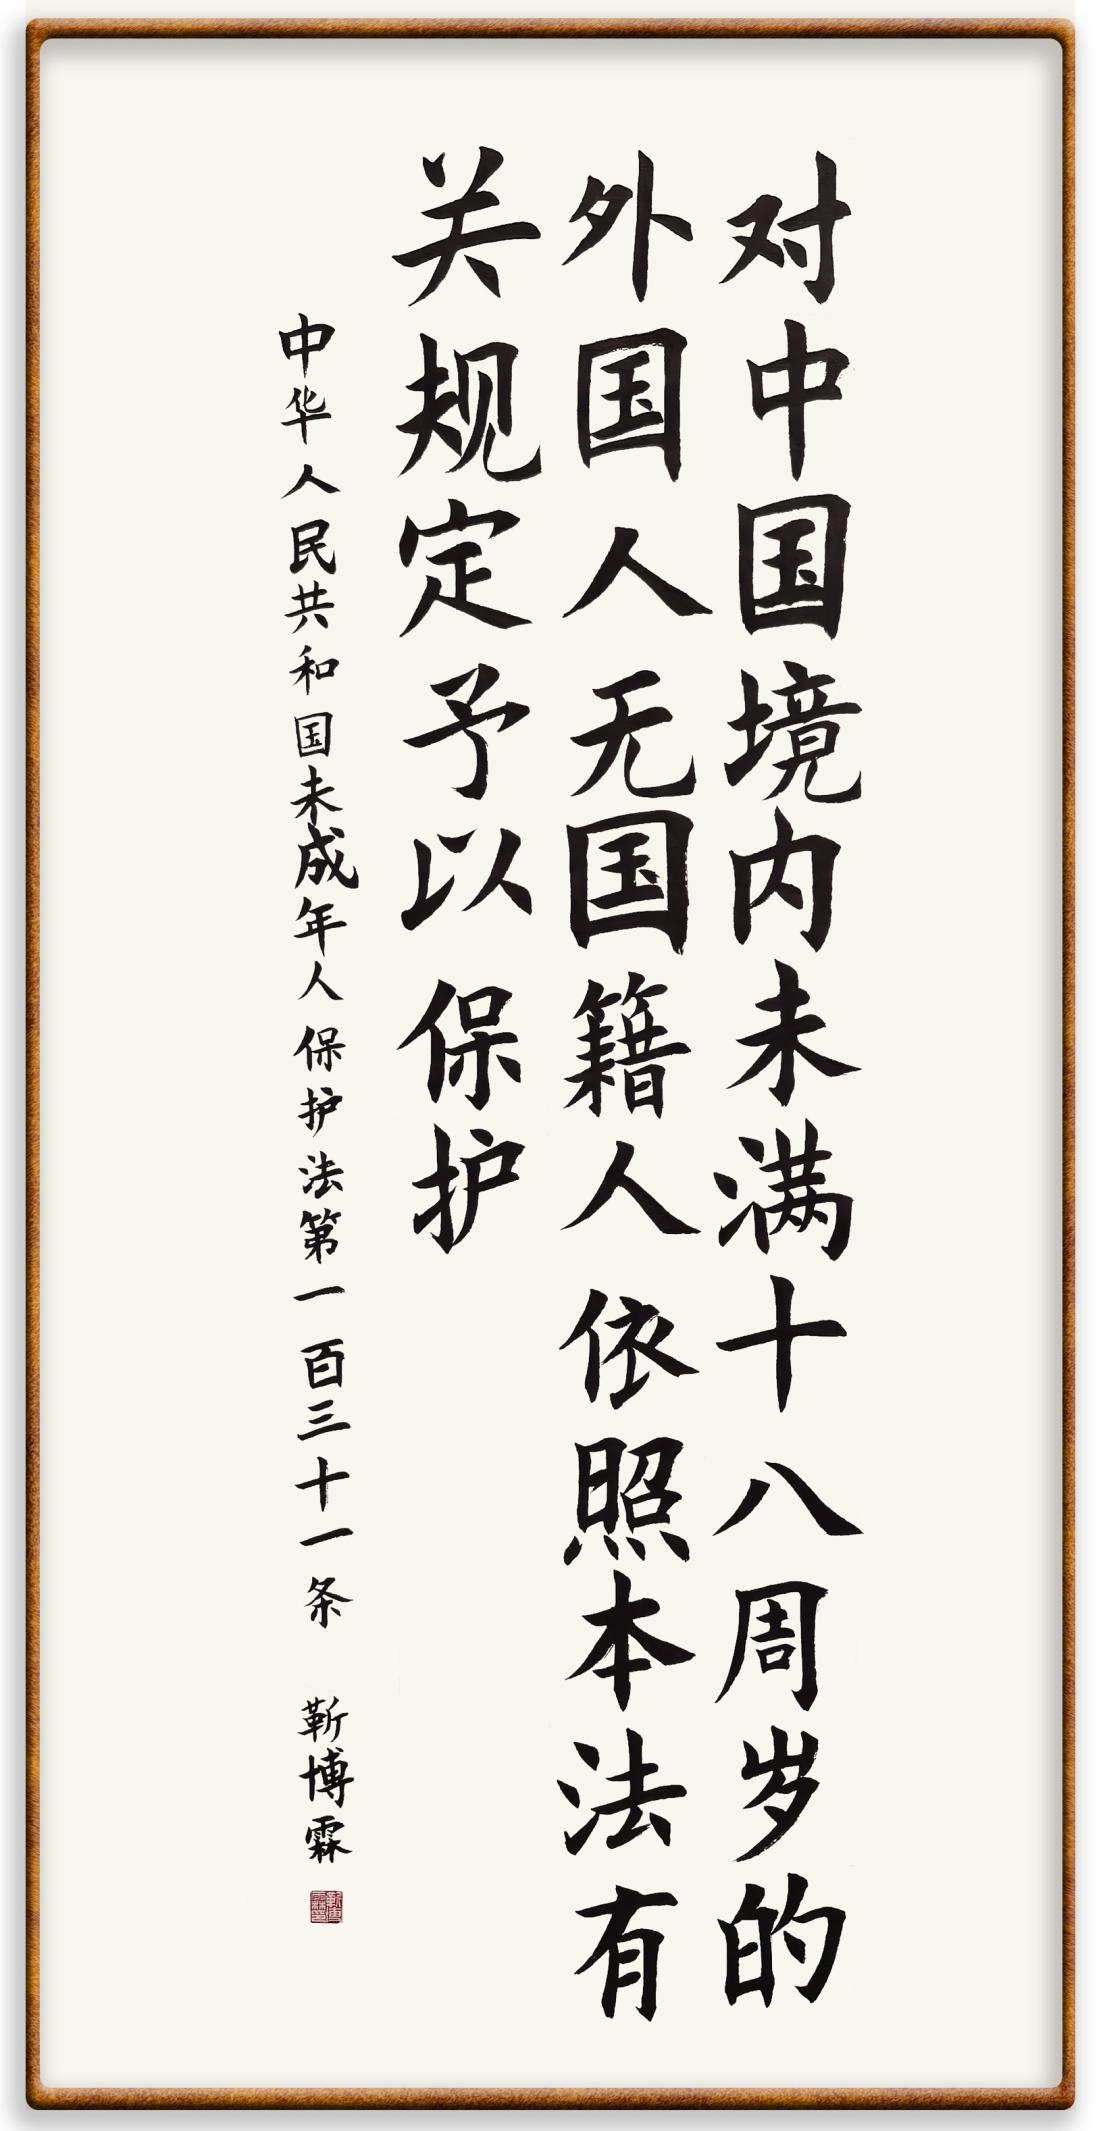 对中国境内未满十八周岁的
外国人无国籍人依照本法有
关规定予以保护
中华人民共和国未成年人保护法第一百三十一条 靳博霖